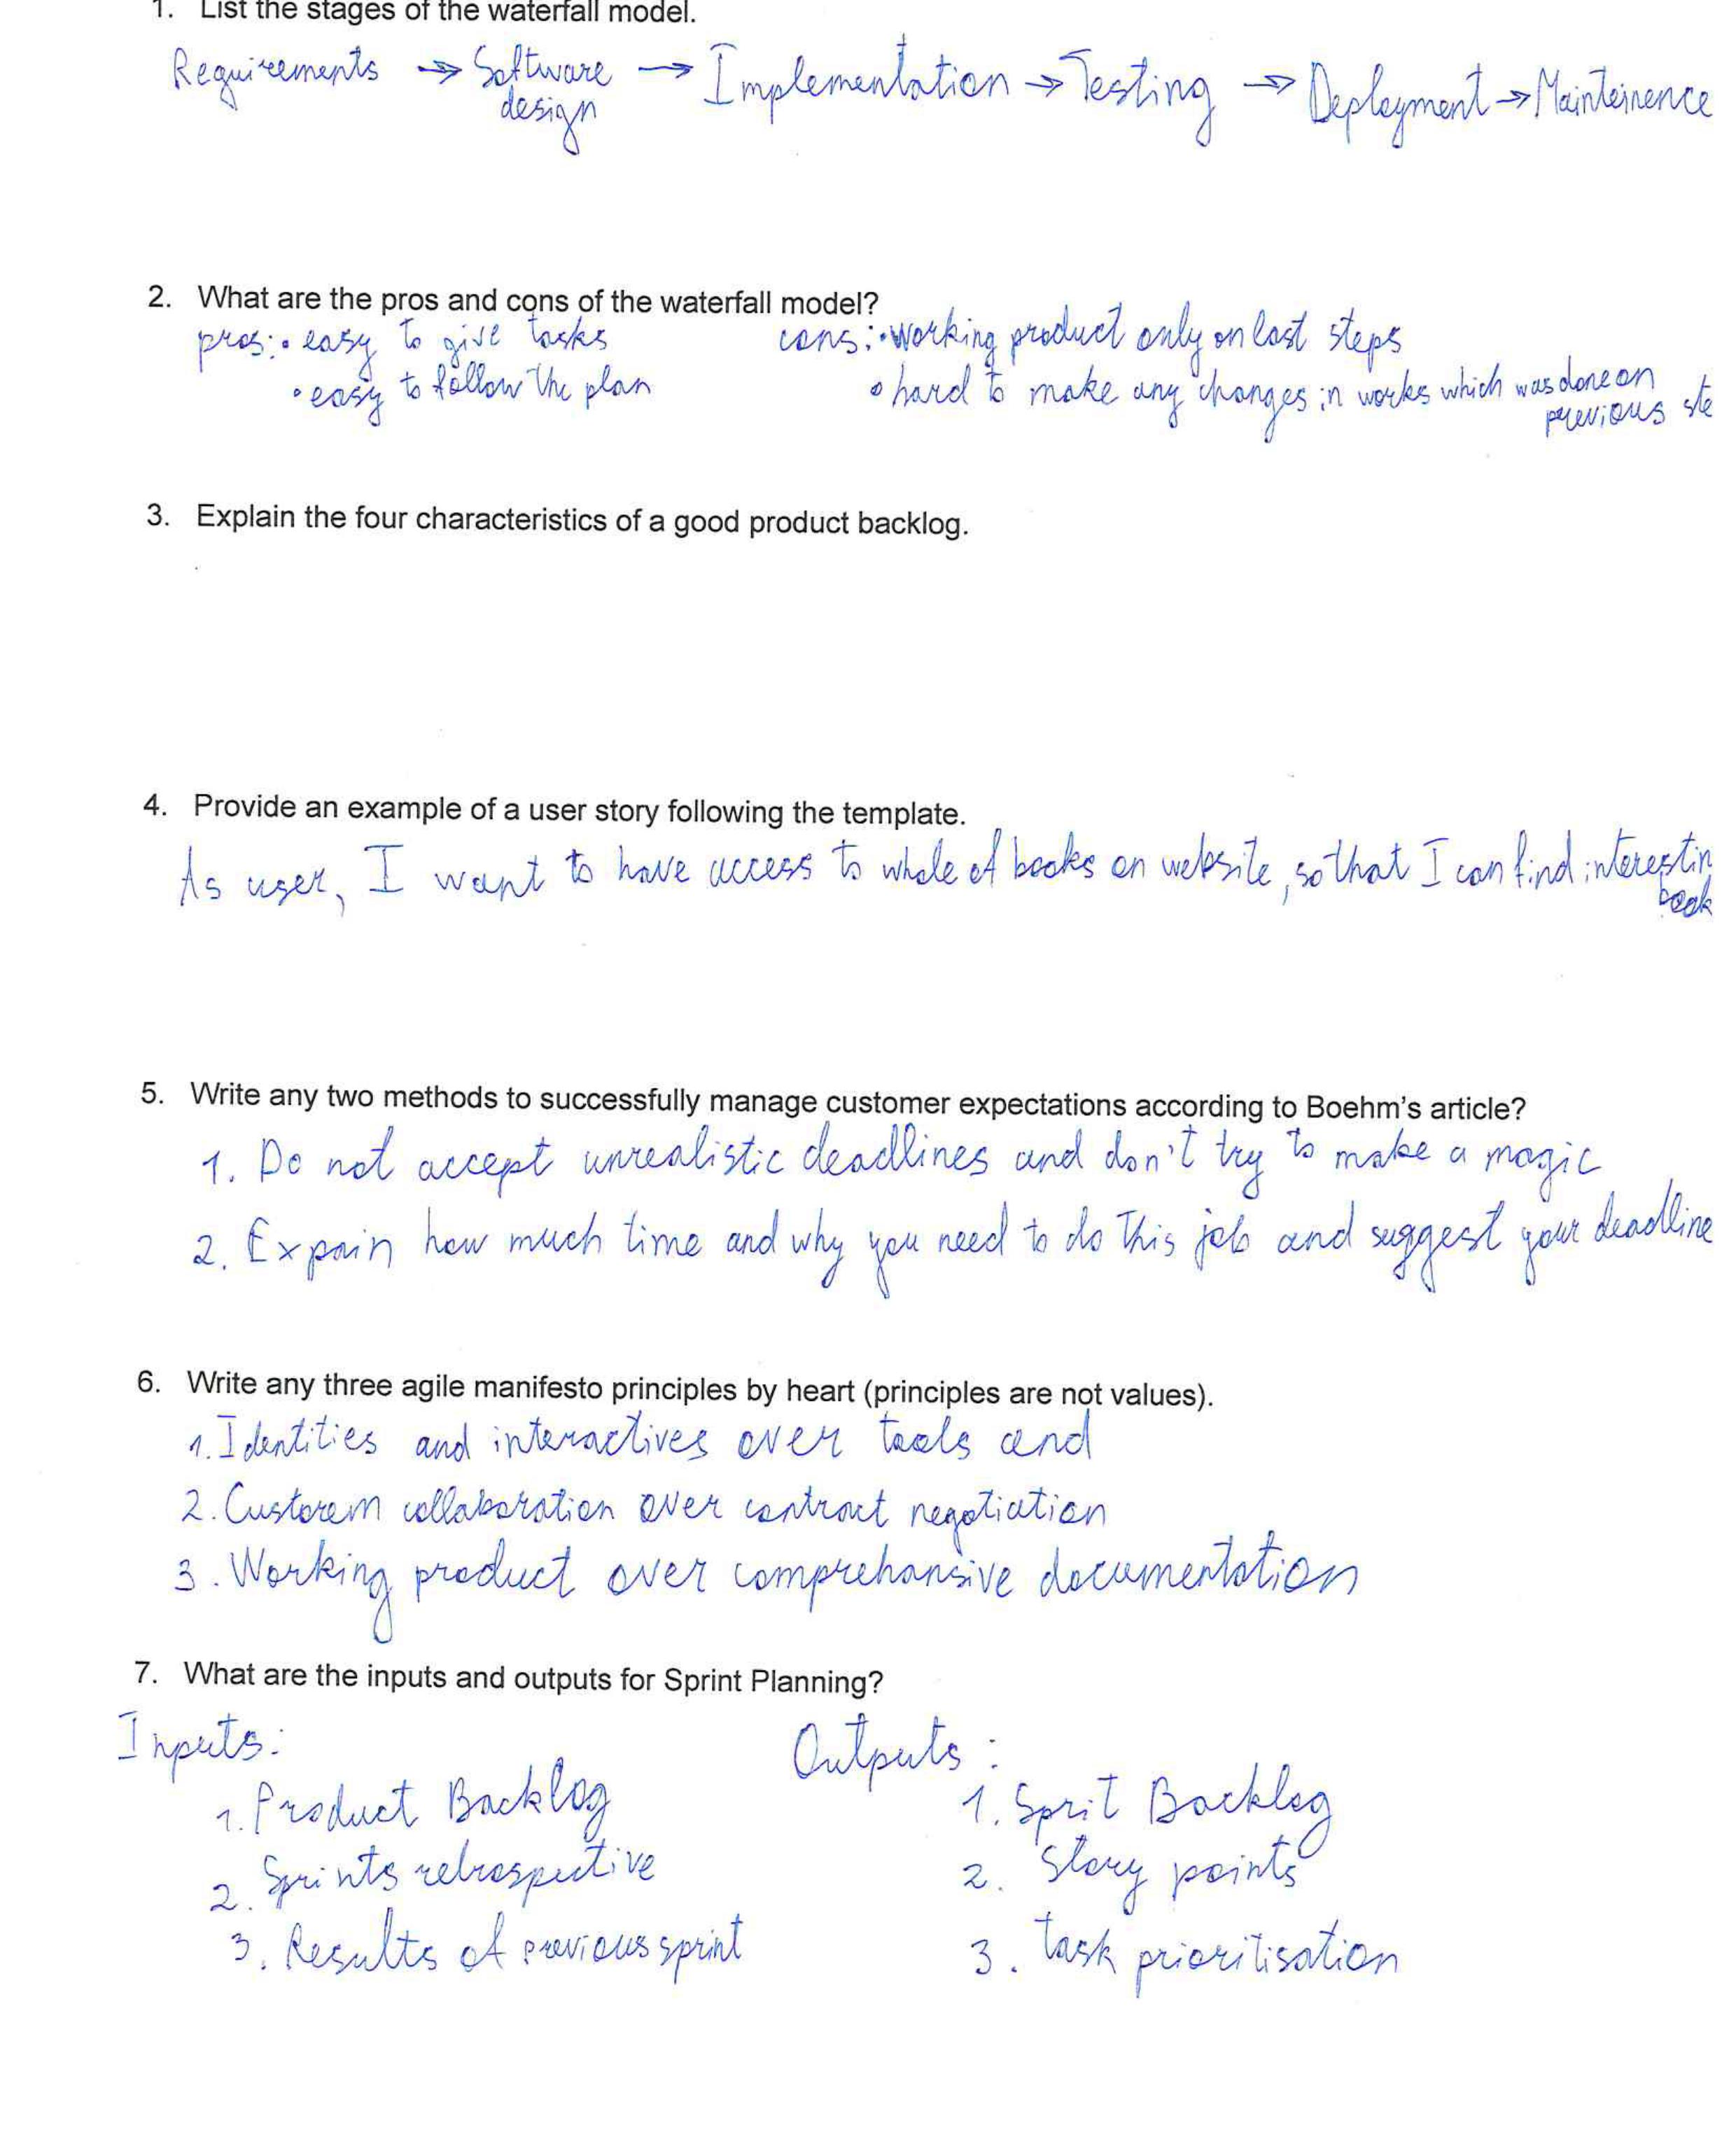 1. List the stages of the waterfall model.
Requirements → Software → Implementation → Testing → Deployment → Mainteinence
design
2. What are the pros and cons of the waterfall model?
pros: • easy to give tasks
• easy to follow the plan
cons: • working product only on last steps
• hard to make any changes in works which was done on
previous ste
3. Explain the four characteristics of a good product backlog.
4. Provide an example of a user story following the template.
As user, I want to have access to whole of books on website, so that I can find interestin
book
5. Write any two methods to successfully manage customer expectations according to Boehm's article?
1. Do not accept unrealistic deadlines and don't try to make a magic
2. Expain how much time and why you need to do this job and suggest your deadline
6. Write any three agile manifesto principles by heart (principles are not values).
1. Identities and interactives over tools and
2. Custorem collaboration over contract negotiation
3. Working product over comprehansive documentation
7. What are the inputs and outputs for Sprint Planning?
Inputs:
1. Product Backlog
2. Sprints retrospective
3. Results of previous sprint
Outputs:
1. Sprit Backlog
2. Story points
3. Task prioritisation